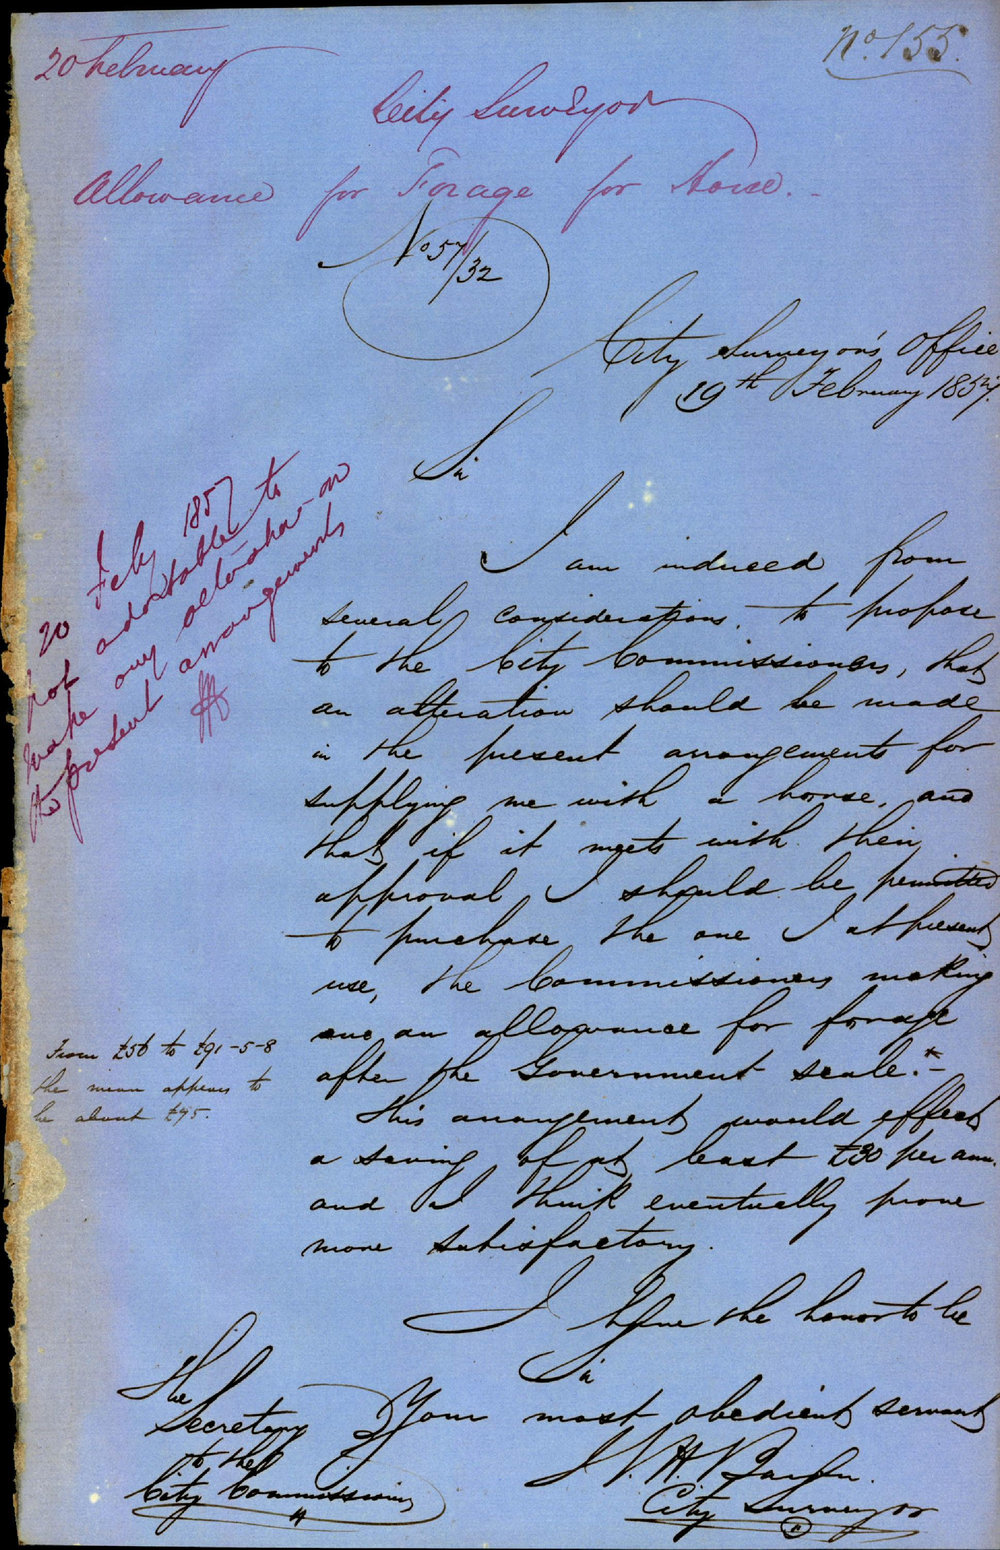 20 February
No. 155.
City Surveyor
Allowance for Forage for Horse.-
No 57/32
City Surveyor's Office
19th February 1857.
Sir
I am induced from
several considerations, to propose
to the City Commissioners, that
an alteration should be made
in the present arrangements for
supplying me with a horse, and
that if it meets with their
approval I should be permitted
to purchase the one I at present
use, the Commissioners making
me an allowance for forage
after the Government scale.-
This arrangement would effect
a saving of at least £30 per ann.
and I think eventually prove
more satisfactory.
I have the honor to be
Sir
Your most obedient servant
City Surveyor
The
Secretary
to the
City Commissioners
20 Feby 1857
Not adoptable to
make any alteration in
the present arrangements
From £56 to £91-5-8
the mean appears to
be about £75.